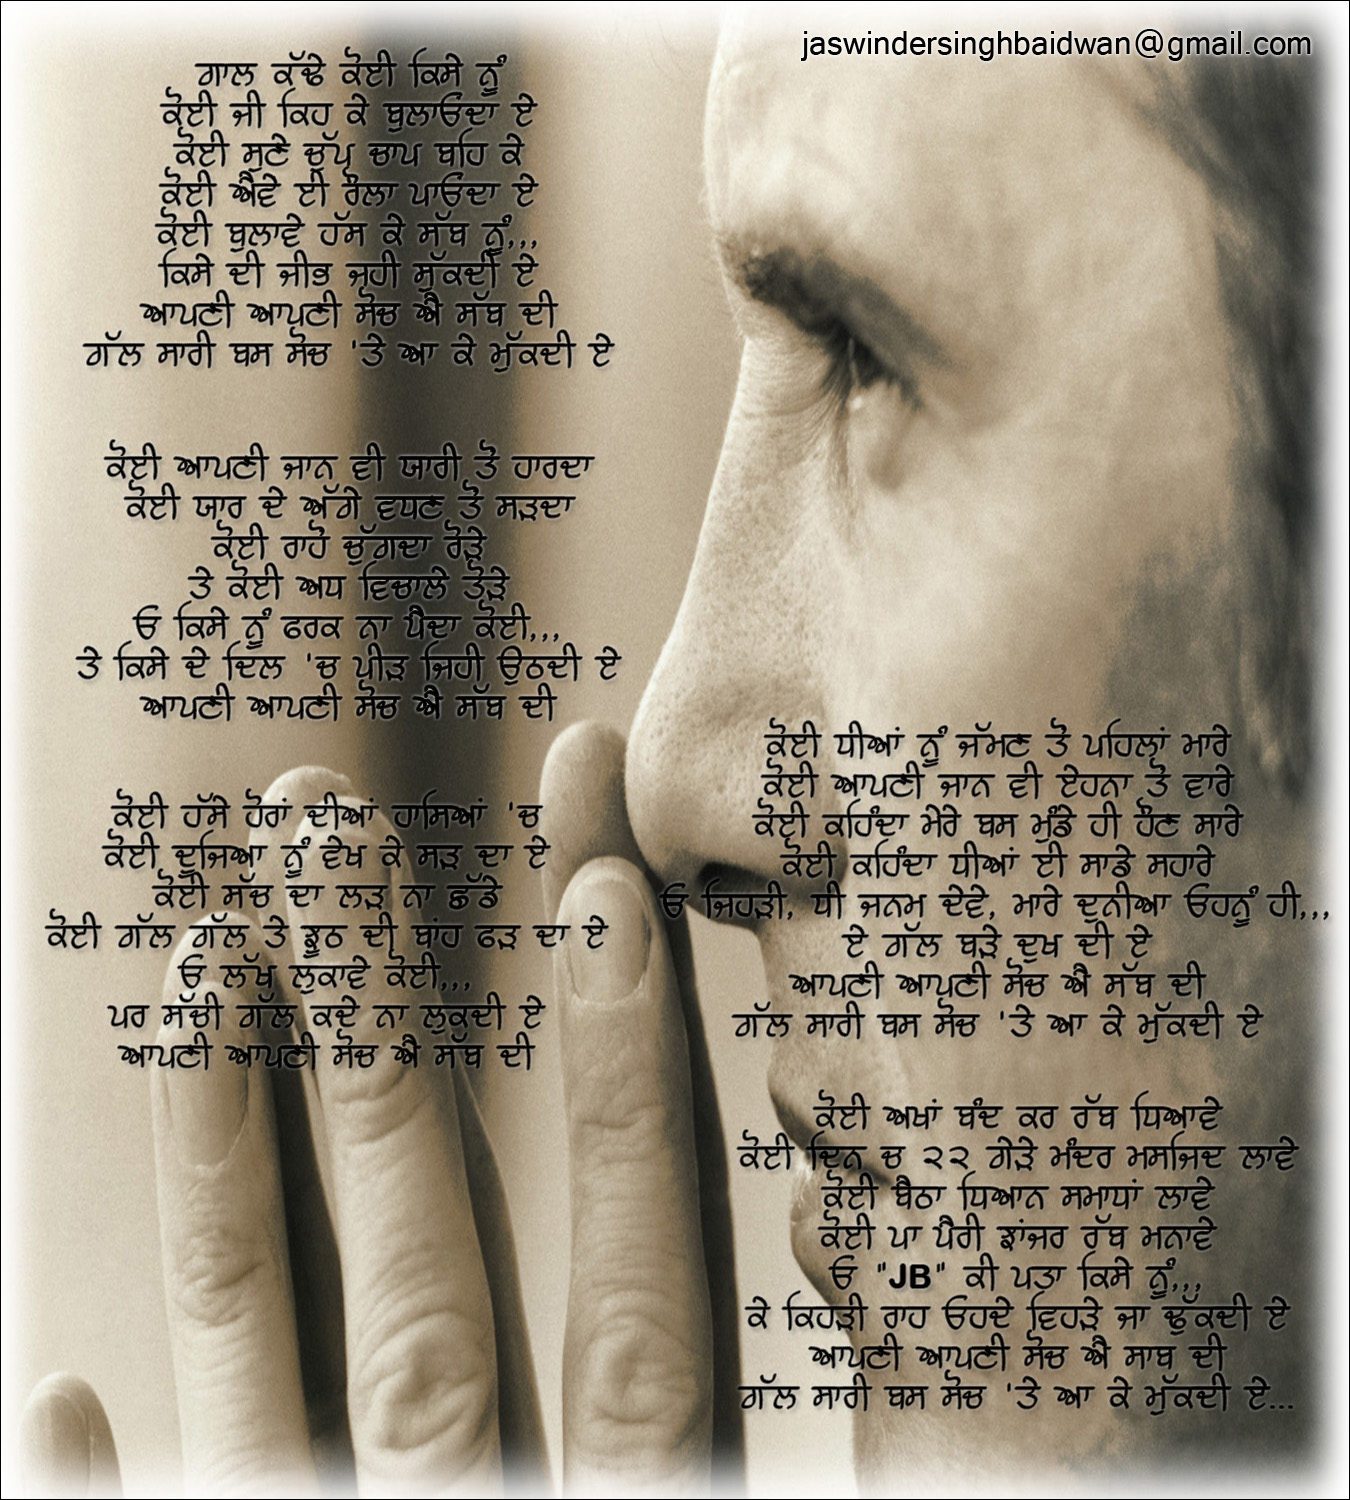 jaswindersinghbaidwan@gmail.com
ਗਾਲ ਕੱਢੇ ਕੋਈ ਕਿਸੇ ਨੂੰ
ਕੋਈ ਜੀ ਕਿਹ ਕੇ ਬੁਲਾਓਂਦਾ ਏ
ਕੋਈ ਸੁਣੇ ਚੁੱਪ ਚਾਪ ਬਹਿ ਕੇ
ਕੋਈ ਐਵੇਂ ਈ ਰੌਲਾ ਪਾਓਂਦਾ ਏ
ਕੋਈ ਬੁਲਾਵੇ ਹੱਸ ਕੇ ਸੱਬ ਨੂੰ,,,
ਕਿਸੇ ਦੀ ਜੀਭ ਜ੍ਹੀ ਸੁੱਕਦੀ ਏ
ਆਪਣੀ ਆਪਣੀ ਸੋਚ ਐ ਸੱਬ ਦੀ
ਗੱਲ ਸਾਰੀ ਬਸ ਸੋਚ 'ਤੇ ਆ ਕੇ ਮੁੱਕਦੀ ਏ
ਕੋਈ ਆਪਣੀ ਜਾਨ ਵੀ ਯਾਰੀ ਤੋਂ ਹਾਰਦਾ
ਕੋਈ ਯਾਰ ਦੇ ਅੱਗੇ ਵਧਣ ਤੋਂ ਸੜਦਾ
ਕੋਈ ਰਾਹੋਂ ਚੁੱਗਦਾ ਰੋੜੇ
ਤੇ ਕੋਈ ਅਧ ਵਿਚਾਲੇ ਤੋੜੇ
ਓ ਕਿਸੇ ਨੂੰ ਫਰਕ ਨਾ ਪੈਂਦਾ ਕੋਈ,,,
ਤੇ ਕਿਸੇ ਦੇ ਦਿਲ 'ਚ ਪੀੜ ਜਿਹੀ ਉਠਦੀ ਏ
ਆਪਣੀ ਆਪਣੀ ਸੋਚ ਐ ਸੱਬ ਦੀ
ਕੋਈ ਹੱਸੇ ਹੋਰਾਂ ਦੀਆਂ ਹਾਸਿਆਂ 'ਚ
ਕੋਈ ਦੂਜਿਆ ਨੂੰ ਵੇਖ ਕੇ ਸੜ ਦਾ ਏ
ਕੋਈ ਸੱਚ ਦਾ ਲੜ ਨਾ ਛੱਡੇ
ਕੋਈ ਗੱਲ ਗੱਲ ਤੇ ਝੂਠ ਦੀ ਬਾਂਹ ਫੜ ਦਾ ਏ
ਓ ਲੱਖ ਲੁਕਾਵੇ ਕੋਈ,,,
ਪਰ ਸੱਚੀ ਗੱਲ ਕਦੇ ਨਾ ਲੁਕਦੀ ਏ
ਆਪਣੀ ਆਪਣੀ ਸੋਚ ਐ ਸੱਬ ਦੀ
ਕੋਈ ਧੀਆਂ ਨੂੰ ਜੱਮਣ ਤੋਂ ਪਹਿਲਾਂ ਮਾਰੇ
ਕੋਈ ਆਪਣੀ ਜਾਨ ਵੀ ਏਹਨਾ ਤੋਂ ਵਾਰੇ
ਕੋਈ ਕਹਿੰਦਾ ਮੇਰੇ ਬਸ ਮੁੰਡੇ ਹੀ ਹੌਣ ਸਾਰੇ
ਕੋਈ ਕਹਿੰਦਾ ਧੀਆਂ ਈ ਸਾਡੇ ਸਹਾਰੇ
ਓ ਜਿਹੜੀ, ਧੀ ਜਨਮ ਦੇਵੇ, ਮਾਰੇ ਦੁਨੀਆ ਓਹਨੂੰ ਹੀ,,,
ਏ ਗੱਲ ਬੜੇ ਦੁਖ ਦੀ ਏ
ਆਪਣੀ ਆਪਣੀ ਸੋਚ ਐ ਸੱਬ ਦੀ
ਗੱਲ ਸਾਰੀ ਬਸ ਸੋਚ 'ਤੇ ਆ ਕੇ ਮੁੱਕਦੀ ਏ
ਕੋਈ ਅਖਾਂ ਬੰਦ ਕਰ ਰੱਬ ਧਿਆਵੇ
ਕੋਈ ਦਿਨ ਚ ੨੨ ਗੇੜੇ ਮੰਦਰ ਮਸਜਿਦ ਲਾਵੇ
ਕੋਈ ਬੈਠਾ ਧਿਆਨ ਸਮਾਧਾਂ ਲਾਵੇ
ਕੋਈ ਪਾ ਪੈਰੀਂ ਝਾਂਜਰ ਰੱਬ ਮਨਾਵੇ
ਓ "JB" ਕੀ ਪਤਾ ਕਿਸੇ ਨੂੰ,,,
ਕੇ ਕਿਹੜੀ ਰਾਹ ਓਹਦੇ ਵਿਹੜੇ ਜਾ ਢੁੱਕਦੀ ਏ
ਆਪਣੀ ਆਪਣੀ ਸੋਚ ਐ ਸਾਬ ਦੀ
ਗੱਲ ਸਾਰੀ ਬਸ ਸੋਚ 'ਤੇ ਆ ਕੇ ਮੁੱਕਦੀ ਏ...